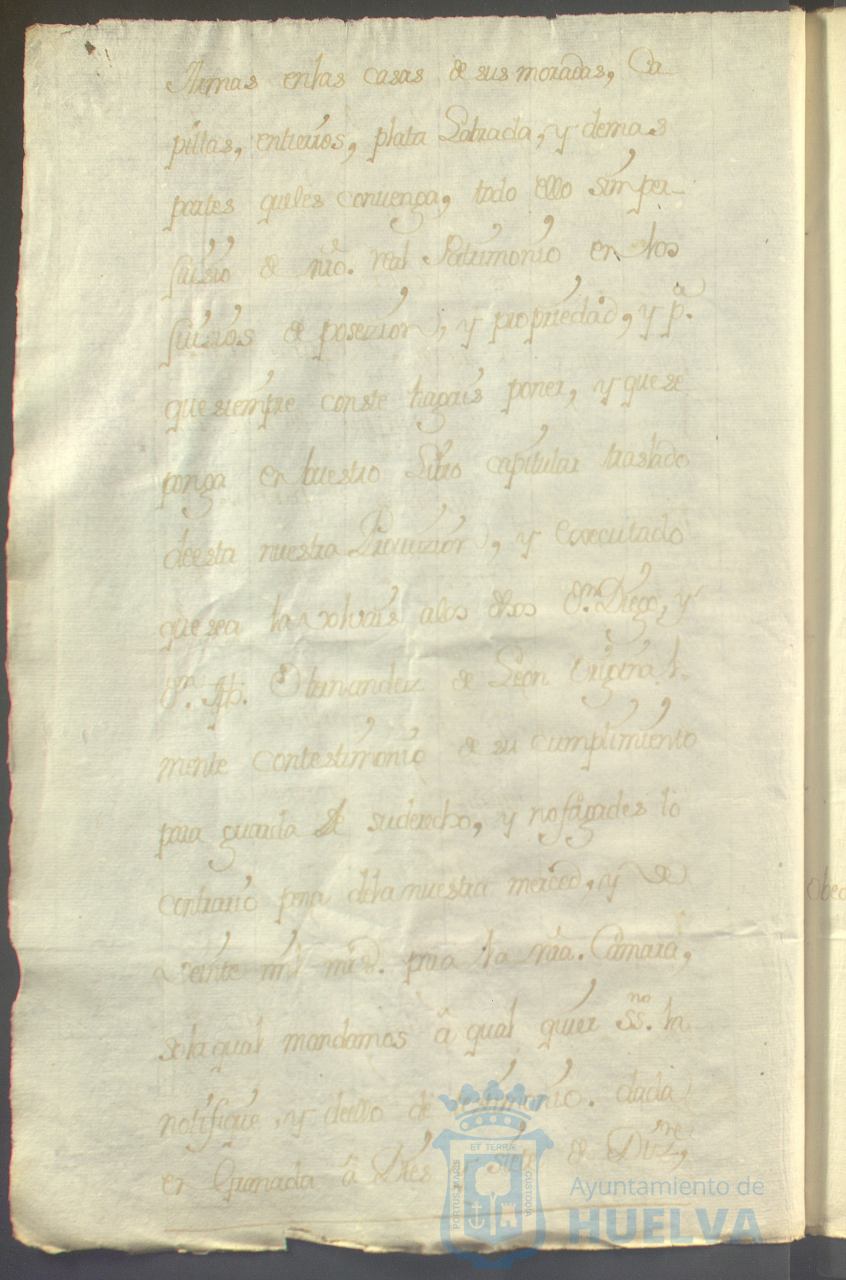 Armas enlas casas de sus moradas, Ca
pillas, entierros, plata Labrada, y demas
partes queles convenga, todo ello simper-
juisio de nro. real Patrimonio en los
juisios de posezion, y propriedad, y pa.
que siempre conste hagais poner, y que se
ponga en buestro Libro capitular traslado
deesta nuestra Provizion, y executado
que sea la volvais alos dhos Dn. Diego, y
Dn. Hernandez de Leon original
mente contestimonio de su cumplimiento
para guarda de suderecho, y nofagades lo
contrario pena dela nuestra merced, y de
veinte mil mrd. para la nra. Camara,
sola qual mandamos â qual quier ssno. la
notifique, y deello de testimonio. dada
en Granada â Dies y siete de Dizre,
ET TERRÆ
PORTUS MARIS
CUSTODIA
Ayuntamiento de
HUELVA